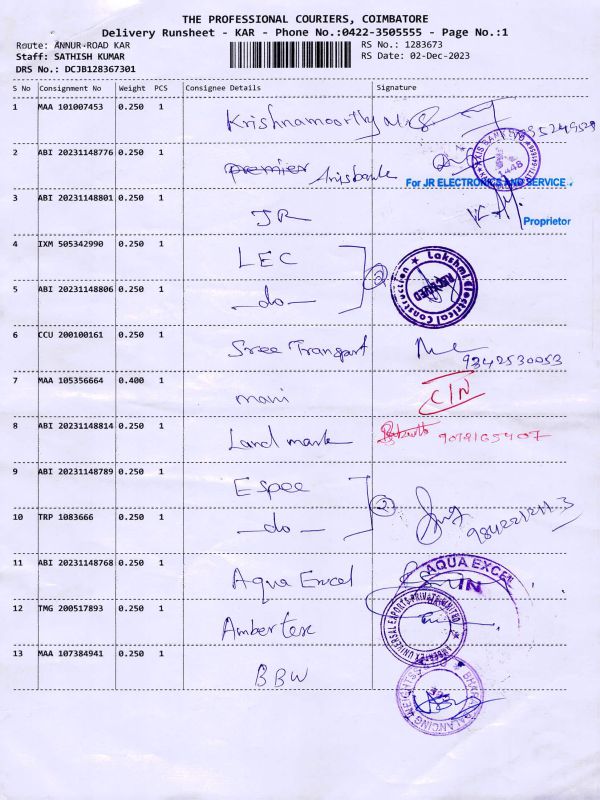 THE PROFESSIONAL COURIERS, COIMBATORE
Delivery Runsheet - KAR - Phone No.:0422-3505555 - Page No.:1
Route: ANNUR-ROAD KAR
RS No.: 1283673
Staff: SATHISH KUMAR
RS Date: 02-Dec-2023
DRS No.: DCJB128367301
S No Consignment No Weight PCS Consignee Details Signature
1 MAA 101007453 0.250 1 Krishnamoorthy
2 ABI 20231148776 0.250 1 premier Axisbank
AXIS BANK LTD
1448
For JR ELECTRONICS AND SERVICE
3 ABI 20231148801 0.250 1 JR
Proprietor
4 IXM 505342990 0.250 1 LEC
2
Lakshmi Electrical Construction
RECEIVED
5 ABI 20231148806 0.250 1 -do-
6 CCU 200100161 0.250 1 Sree Transport
9342530053
7 MAA 105356664 0.400 1 mani C/N
8 ABI 20231148814 0.250 1 Land mark
9 ABI 20231148789 0.250 1 Espee
2
10 TRP 1083666 0.250 1 -do-
11 ABI 20231148768 0.250 1 Aqua Excel
AQUA EXCEL
IN
12 TMG 200517893 0.250 1 Ambertex
AMBERTEX UNIVERSAL EXPORTS PRIVATE LIMITED
13 MAA 107384941 0.250 1 BBW
BALANCING WEIGHTS